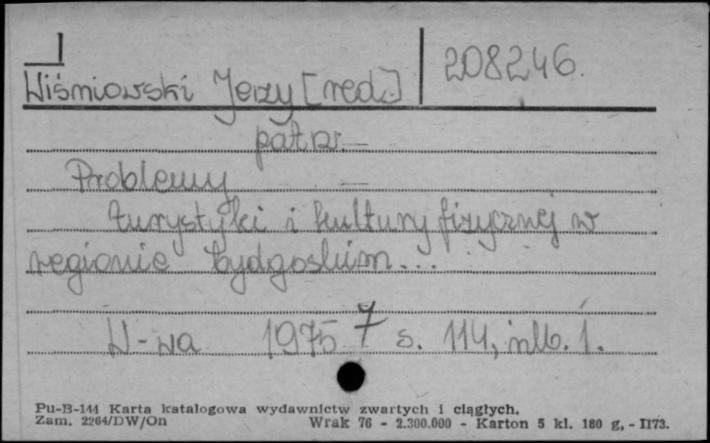 1
208246.
Wiśniowski Jerzy [red.]
patrz.
Problemy
turystyki i kultury fizycznej w
regionie bydgoskim...
W-wa 1975 7 s. 114, nlb. 1.
Pu-B-144 Karta katalogowa wydawnictw zwartych i ciągłych.
Zam. 2264/DW/On Wrak 76 - 2.300.000 - Karton 5 kl. 180 g, - II73.